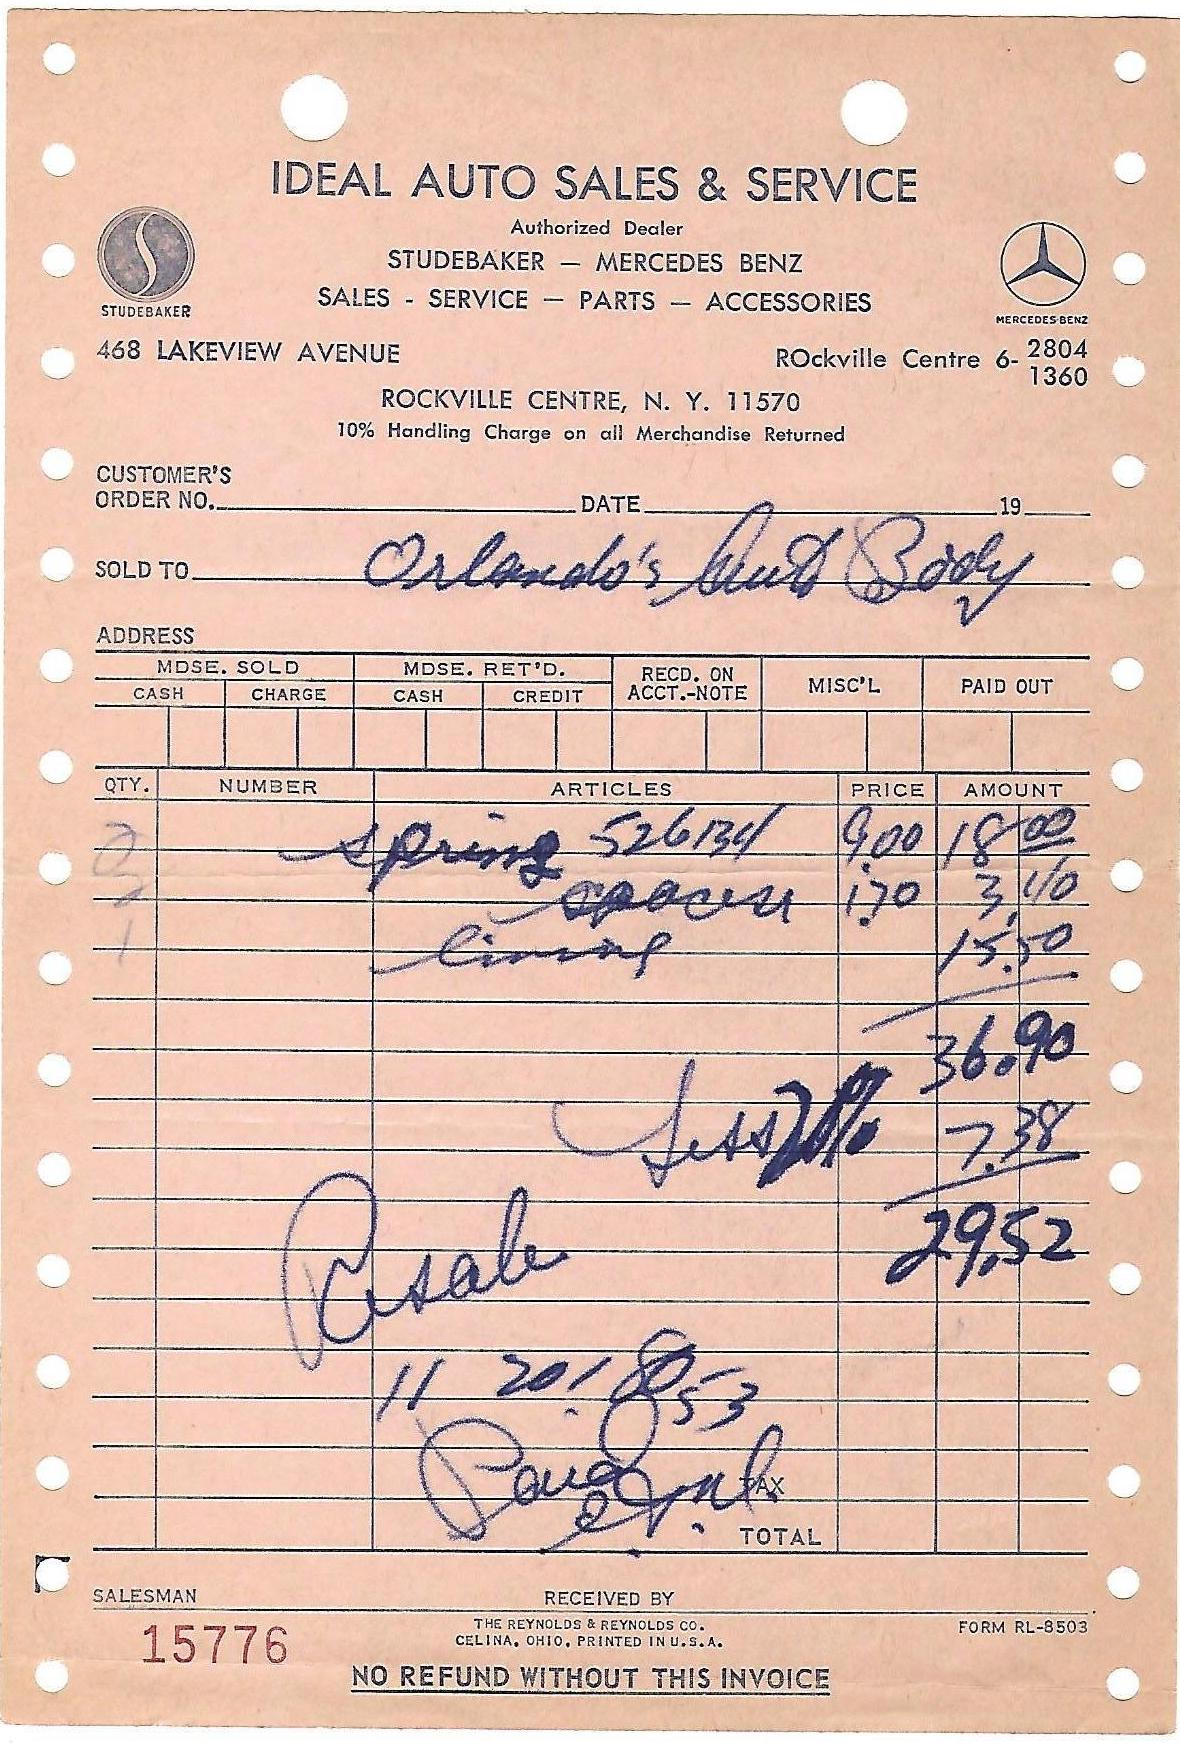 IDEAL AUTO SALES & SERVICE
Authorized Dealer
STUDEBAKER — MERCEDES BENZ
SALES - SERVICE — PARTS — ACCESSORIES
STUDEBAKER
MERCEDES-BENZ
468 LAKEVIEW AVENUE ROckville Centre 6- 2804
1360
ROCKVILLE CENTRE, N. Y. 11570
10% Handling Charge on all Merchandise Returned
CUSTOMER'S
ORDER NO. DATE 19
SOLD TO Orlando's Auto Body
ADDRESS
MDSE. SOLD MDSE. RET'D. RECD. ON ACCT.-NOTE MISC'L PAID OUT
CASH CHARGE CASH CREDIT
QTY. NUMBER ARTICLES PRICE AMOUNT
2 spring 526134 9.00 18 00
2 spacers 1.70 3.40
1 lining 15.50
36.90
Less 20% 7.38
29.52
Resale
11 20 1 80 53
Paid
TAX
TOTAL
SALESMAN RECEIVED BY
15776
THE REYNOLDS & REYNOLDS CO.
CELINA, OHIO, PRINTED IN U.S.A.
FORM RL-8503
NO REFUND WITHOUT THIS INVOICE